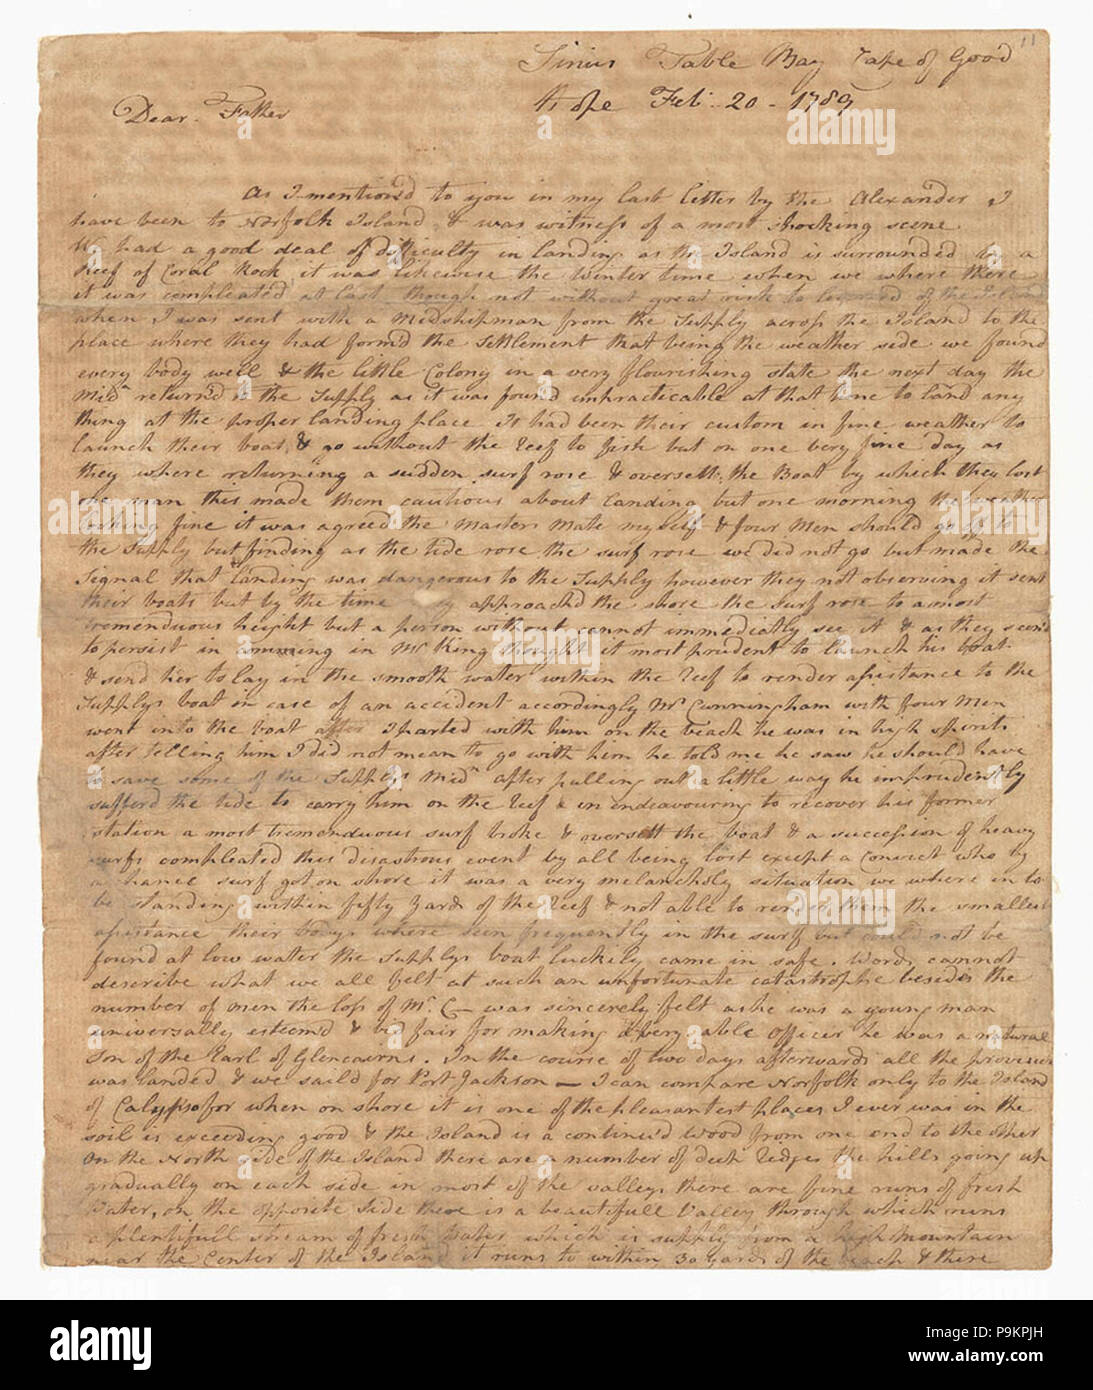 11
Sirius Table Bay Cape of Good
Hope Feb. 20 - 1789
Dear Father
As I mention'd to you in my last letter by the Alexander I
have been to Norfolk Island & was witness of a most shocking scene
We had a good deal of difficulty in landing as the Island is surrounded by a
Reef of Coral Rock, it was likewise the Winter time when we where there
it was compleated at last though not without great risk to of the Island
when I was sent with a Midshipman from the Supply across the Island to the
place where they had form'd the Settlement that being the weather side we found
every body well & the little Colony in a very flourishing state the next day the
Midn return'd to the Supply as it was found impracticable at that time to land any
thing at the proper landing place It had been their custom in fine weather to
launch their boat & go without the Reef to fish but on one very fine day as
they where returning a sudden surf rose & oversett the Boat by which they lost
one man this made them cautious about Landing but one morning the weather
looking fine it was agreed the Masters Mate myself & four Men should go off to
the Supply but finding as the tide rose the surf rose we did not go but made the
Signal that landing was dangerous to the Supply however they not observing it sent
their boats but by the time they approach'd the shore the surf rose to a most
tremenduous height but a person without cannot immediatly see it & as they seem'd
to persist in comming in Mr King thought it most prudent to launch his boat
& send her to lay in the smooth water within the Reef to render assistance to the
Supplys boat in case of an accident accordingly Mr Cunningham with four Men
went into the boat after I parted with him on the beach he was in high spirits
after telling him I did not mean to go with him he told me he saw he should have
to save some of the Supplys Midn after pulling out a little way he imprudently
sufferd the tide to carry him on the Reef & in endeavouring to recover his former
station a most tremenduous surf broke & oversett the boat & a succession of heavy
surfs compleated this disastrous event by all being lost except a Convict who by
a chance surf got on shore it was a very melancholy situation we where in to
be standing within fifty yards of the Reef & not able to render them the smallest
assistance their bodys where seen frequently in the surf but could not be
found at low water the Supplys boat luckily came in safe. Words cannot
describe what we all felt at such an unfortunate catastrophe besides the
number of men the loss of Mr C— was sincerely felt as he was a young man
universally esteem'd & bid fair for making a very able Officer he was a natural
son of the Earl of Glencairns. In the course of two days afterwards all the provisions
was landed & we sail'd for Port Jackson — I can compare Norfolk only to the Island
of Calypso for when on shore it is one of the pleasantest places I ever was in the
soil is exceeding good & the Island is a continu'd Wood from one end to the other
On the North side of the Island there are a number of deep Ridges the hills going up
gradually on each side in most of the valleys there are fine runs of fresh
Water, on the opposite side there is a beautifull Valley through which runs
a plentifull stream of fresh Water which is supply'd from a high mountain
near the Center of the Island it runs to within 30 yards of the beach & there
alamy
alamy
a
alamy
Image ID: P9KPJH
www.alamy.com